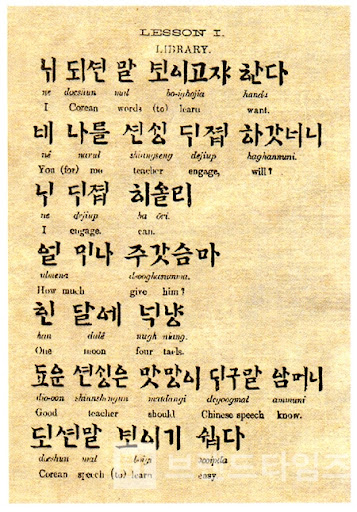 LESSON I.
LIBRARY.
뉘 되션 말 보이고쟈 한다
ne doeshun mal bo-ighojia handa
I Corean words (to) learn want.
네 나를 션싱 뒤졉 하갓너니
né narul shiangseng dejiup haghannuni.
You (for) me teacher engage, will?
뉘 뒤졉 히올리
ne dejiup ha öri.
I engage. can.
얼 미나 주갓슴마
ulmena dsooghanumma.
How much give him?
힌 달에 넉냥
han dalé nugh niang.
One moon four taels.
됴운 션싱은 맛망이 뒤구말 암머니
dio-oon shiansheng­un matdangi degoogmal ammuni
Good teacher should Chinese speech know.
되션말 보이기 쉽다
doeshun mal boigi
Corean speech (to) learn easy